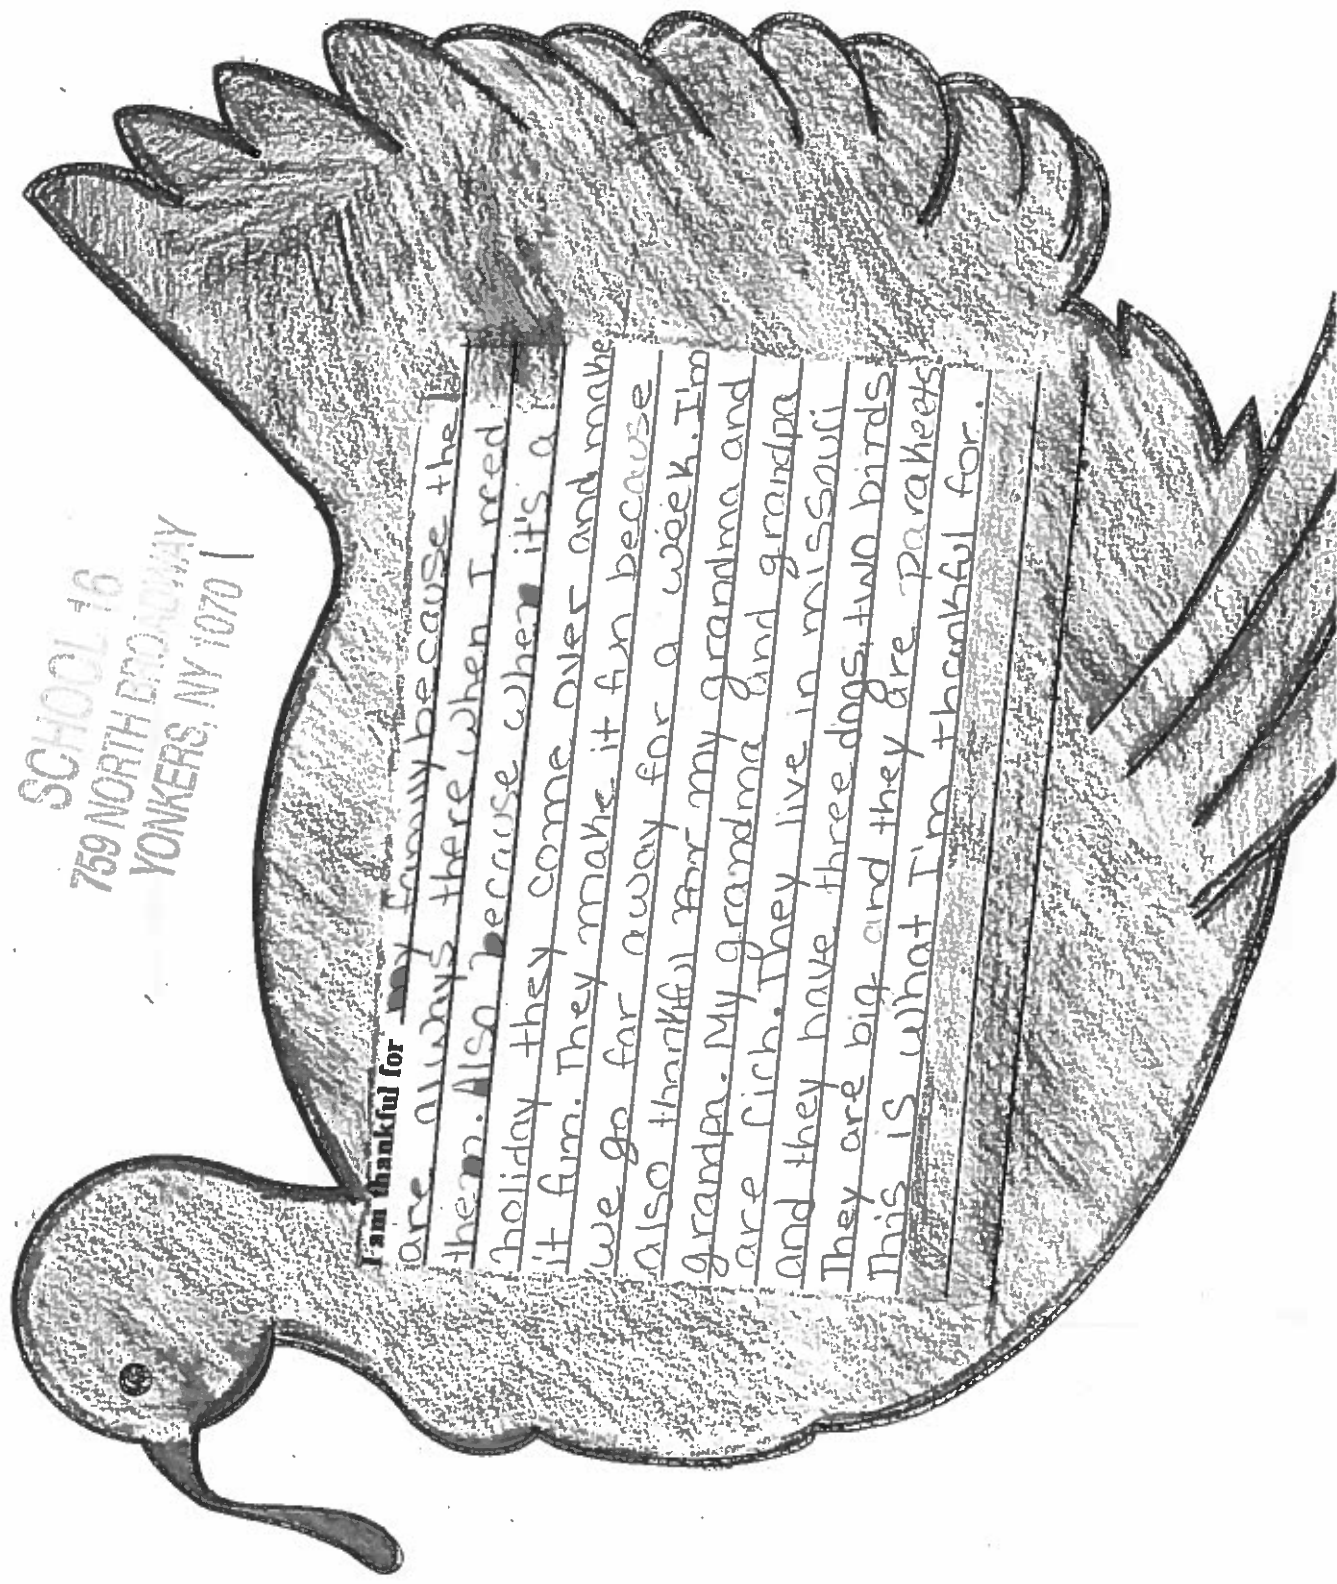 SCHOOL 16
759 NORTH BROADWAY
YONKERS, NY 10701
I am thankful for my family because the
are always there when I need
them. Also because when it's a
holiday they come over and make
it fun. They make it fun because
we go far away for a week. I'm
also thankful for my grandma and
grandpa. My grandma and grandpa
are rich. They live in missouri
and they have three dogs, two birds
They are big and they are parakeets
This is what I'm thankful for.